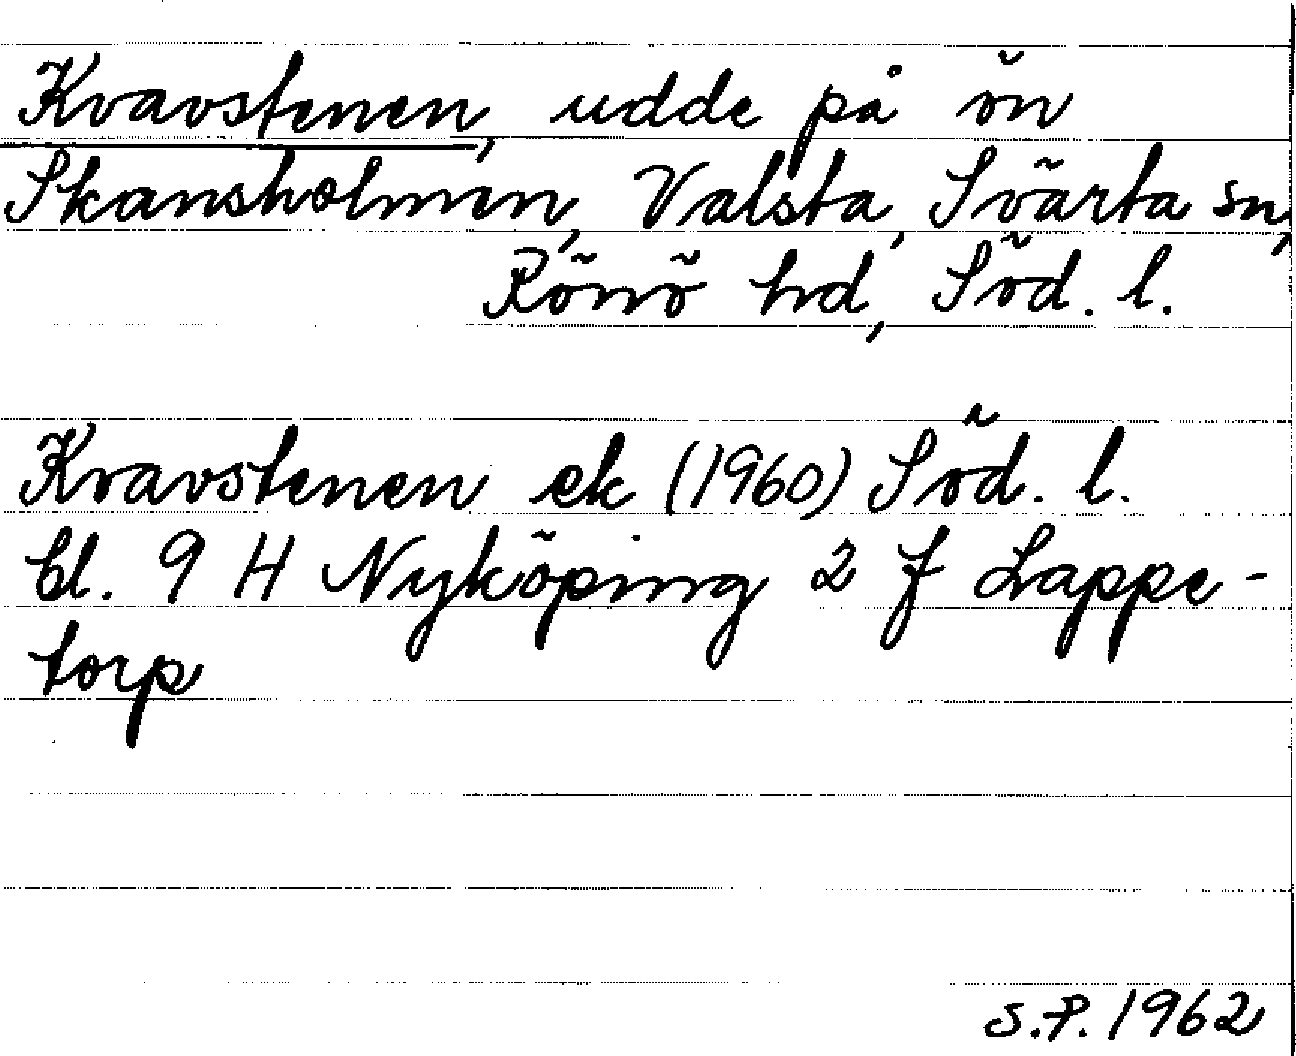 Kravstenen, udde på ön
Skansholmen, Valsta, Svärta sn,
Rönö hd, Söd. l.
Kravstenen ek (1960) Söd. l.
bl. 9 H Nyköping 2 f Lappe-
torp
S.P. 1962